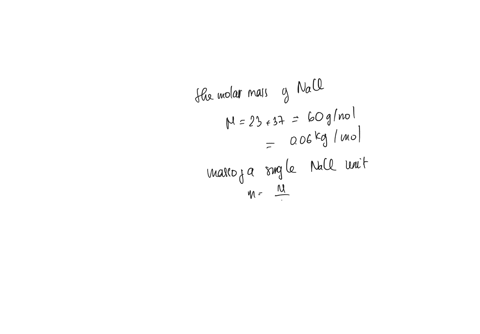 the molar mass g NaCl
M = 23 + 37 = 60 g/mol
= 0.06 kg / mol
mass of a single NaCl unit
m = M